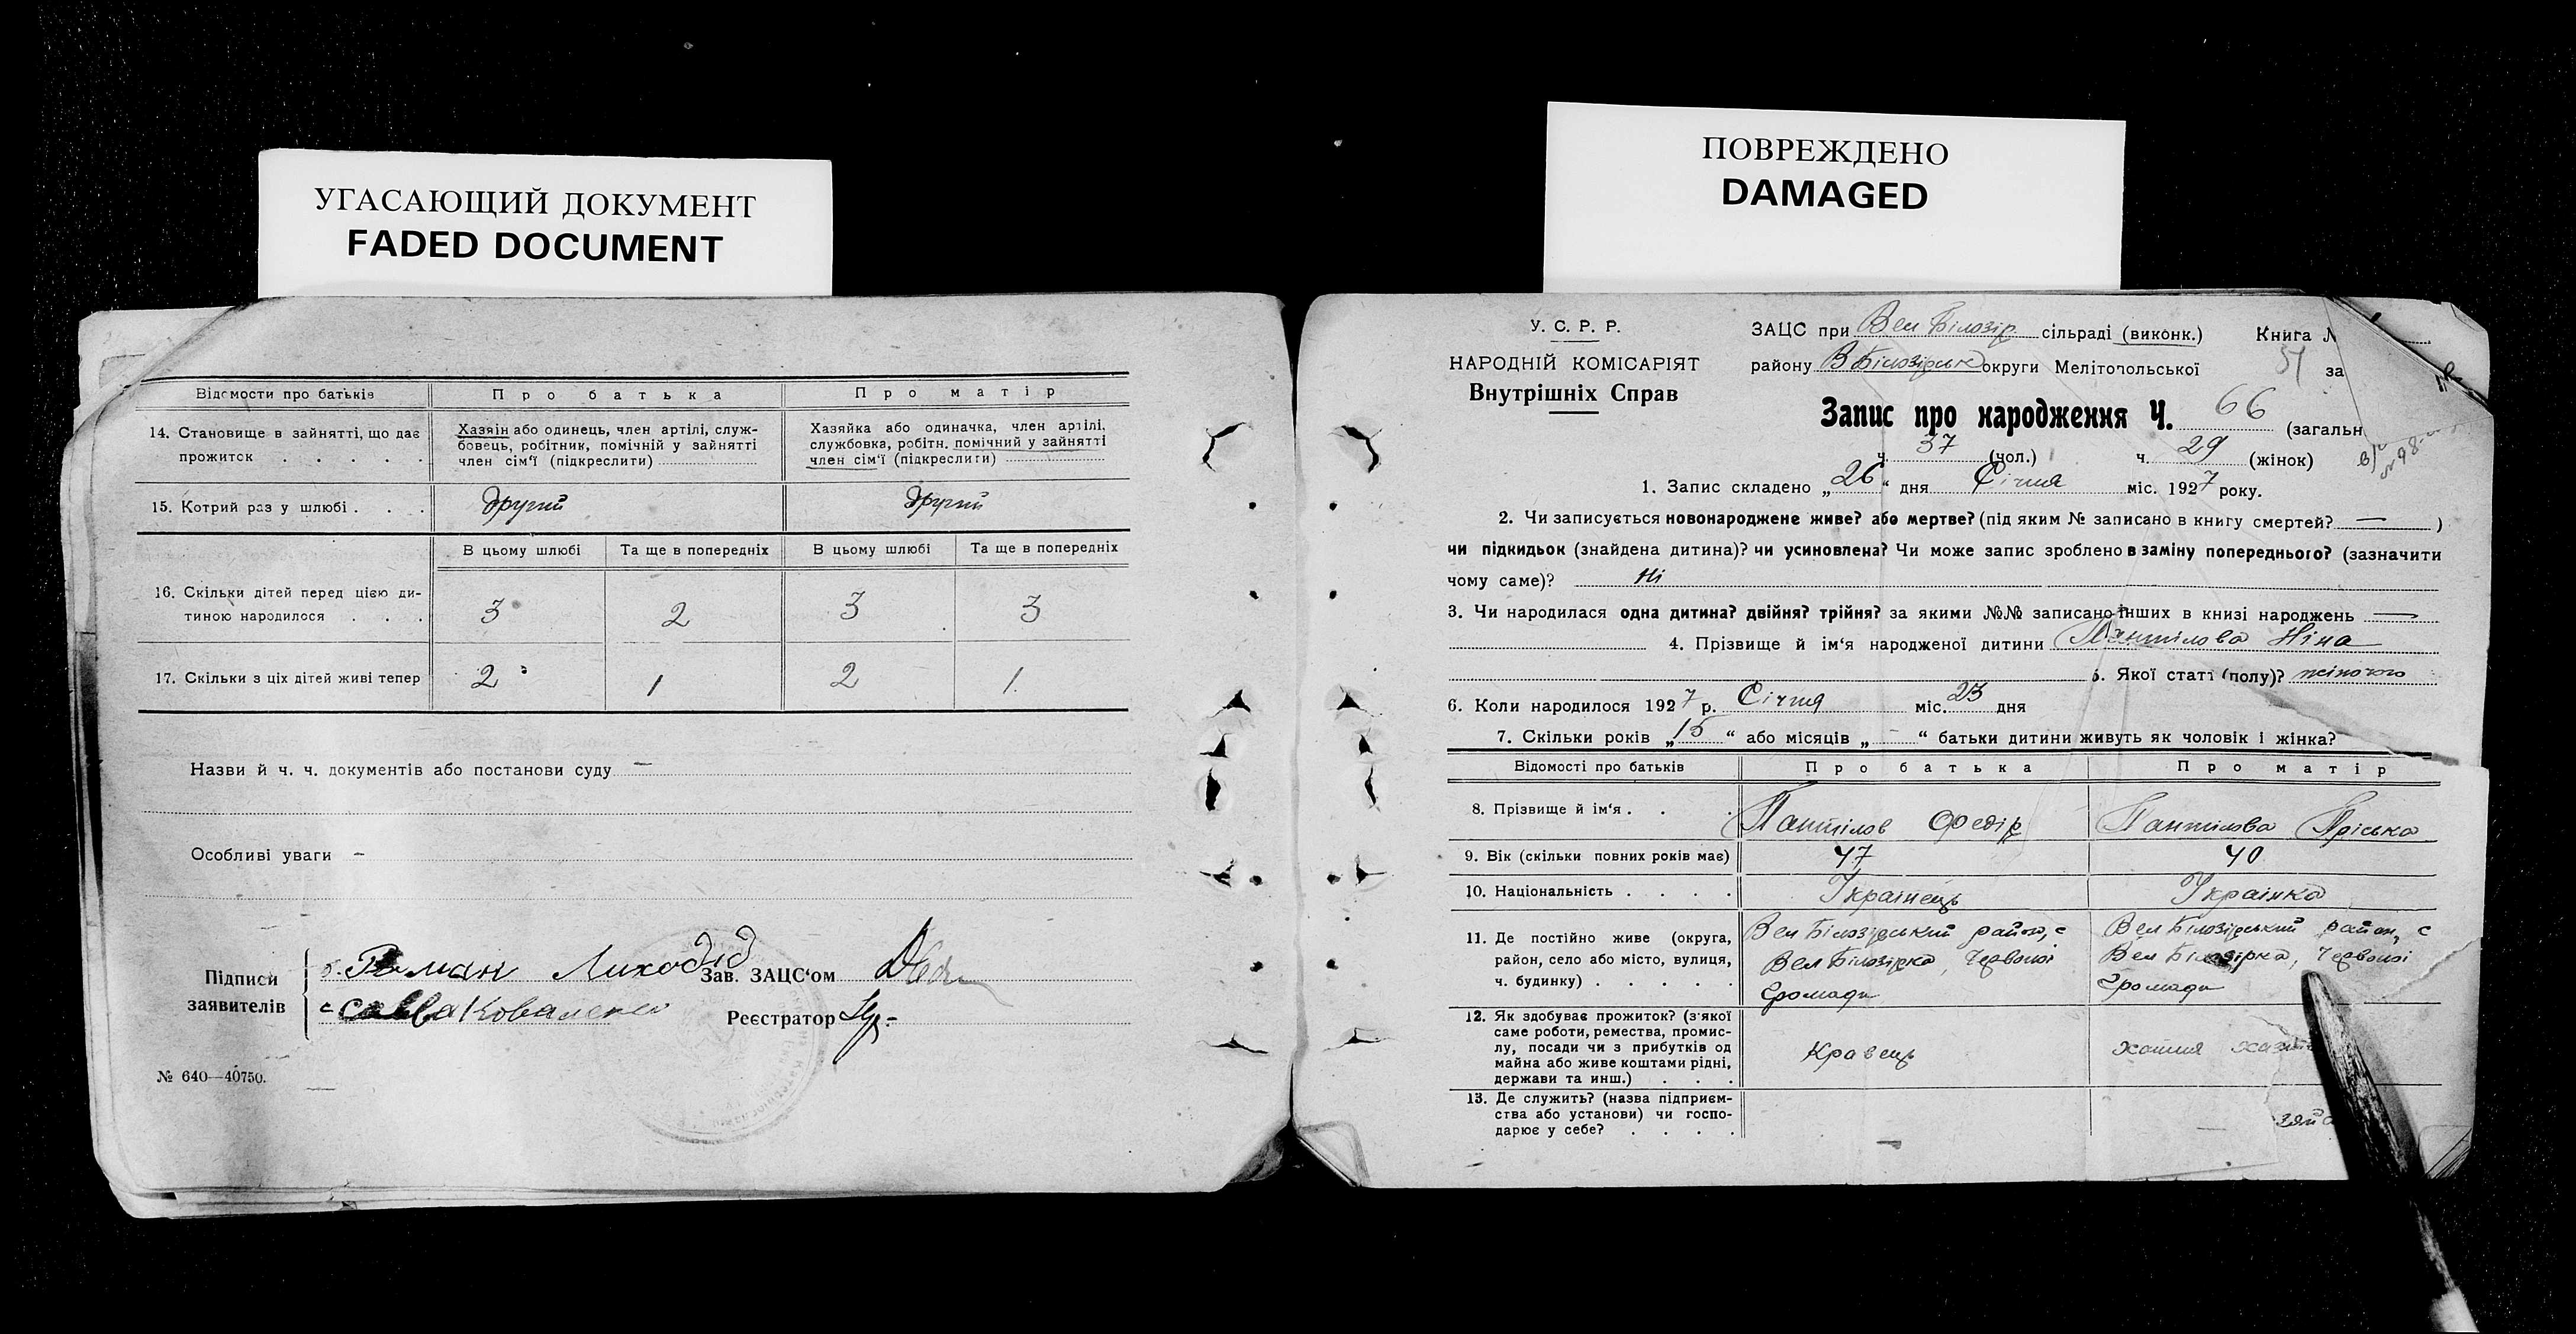 УГАСАЮЩИЙ ДОКУМЕНТ
FADED DOCUMENT
Відомости про батьків
Про батька
Про матір
14. Становище в зайнятті, що дає
прожиток . . . . .
Хазяін або одинець, член артілі, служ-
бовець, робітник, помічній у зайнятті
член сім'ї (підкреслити)
Хазяйка або одиначка, член артілі,
службовка, робітн. помічний у зайнятті
член сім'ї (підкреслити)
15. Котрий раз у шлюбі . . . другий другий
В цьому шлюбі Та ще в попередніх В цьому шлюбі Та ще в попередніх
16. Скільки дітей перед цією ди-
тиною народилося . . . 3 2 3 3
17. Скільки з ціх дітей живі тепер 2 1 2 1
Назви й ч. ч. документів або постанови суду —
Особливі уваги —
Підписи
заявителів
Роман Лиходід
Савва Коваленко
Зав. ЗАЦС'ом
Реєстратор
№ 640—40750.
ПОВРЕЖДЕНО
DAMAGED
У. С. Р. Р.
НАРОДНІЙ КОМІСАРІЯТ
Внутрішніх Справ
ЗАЦС при Вел Білозір сільраді (виконк.) Книга №
району В Білозірськ округи Мелітопольської 51 за
Запис про народження Ч. 66 (загальн
ч. 37 (чол.) ч. 29 (жінок)
1. Запис складено „26“ дня Січня міс. 1927 року.
2. Чи записується новонароджене живе? або мертве? (під яким № записано в книгу смертей? — )
чи підкидьок (знайдена дитина)? чи усиновлена? Чи може запис зроблено в заміну попереднього? (зазначити
чому саме)? Ні
3. Чи народилася одна дитина? двійня? трійня? за якими №№ записано інших в книзі народжень —
4. Прізвище й ім'я народженої дитини Пантілова Ніна
5. Якої статі (полу)? жіночого
6. Коли народилося 1927 р. Січня міс. 23 дня
7. Скільки років „15“ або місяців „—“ батьки дитини живуть як чоловік і жінка?
Відомості про батьків Про батька Про матір
8. Прізвище й ім'я . . . Пантілов Федір Пантілова Пріська
9. Вік (скільки повних років має) 47 40
10. Національність . . . . Українець Українка
11. Де постійно живе (округа,
район, село або місто, вулиця,
ч. будинку) . . . . .
Вел Білозірський район, с
Вел Білозірка, Червоної
Громади
Вел Білозірський район, с
Вел Білозірка, Червоної
Громади
12. Як здобуває прожиток? (з якої
саме роботи, ремества, промис-
лу, посади чи з прибутків од
майна або живе коштами рідні,
держави та инш.) . . .
Кравець
хатня
13. Де служить? (назва підприєм-
ства або установи) чи госпо-
дарює у себе? . . . .